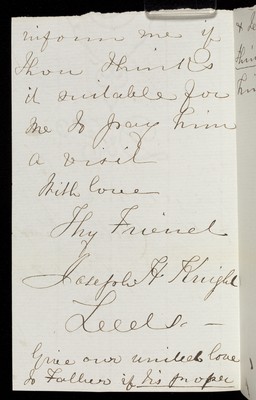 inform me if
thou thinks
it suitable for
me to pay him
a visit
With love
Thy Friend
Joseph H Knight
Leeds. —
Give our united love
to Father if tis proper